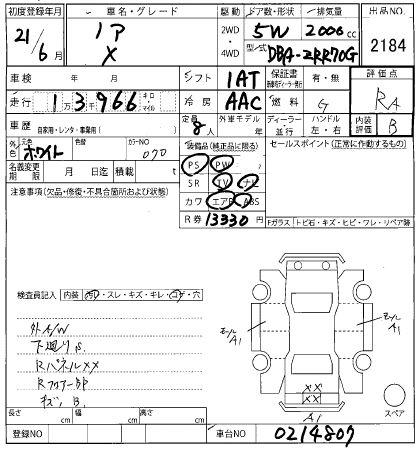 初度登録年月 車名・グレード 駆動 ドア数・形状 排気量 出品NO.
21/6月 1P X 2WD・4WD 5W 2000cc
型式 DBA-ZRR70G 2184
車検 年 月 シフト 1AT 保証書 有・無 評価点
走行 1万3966 キロ・マイル 冷房 AAC 燃料 G RA
車歴 自家用・レンタ・事業用( ) 定員 8人 外車モデル 年 ディーラー・並行 ハンドル 左・右 内装評価 B
外色 元色 ホワイト 色替 カラーNO 070
装備品(純正品に限る) セールスポイント(正常に作動するもの)
名義変更期限 月 日迄 積載 t
PS PW
SR TV ナビ
カワ エアB ABS
R券 13330円
注意事項(欠品・修復・不具合箇所および状態)
Fガラス トビ石・キズ・ヒビ・ワレ・リペア跡
検査員記入 内装 汚・スレ・キズ・キレ・コゲ・穴
外A/W
下廻りS.
RパネルXX
RフロアーBP
キズ、B.
モール A1
モール A1
XX
XX
A1
スペア
長さ cm 幅 cm 高さ cm
登録NO 車台NO 0214807